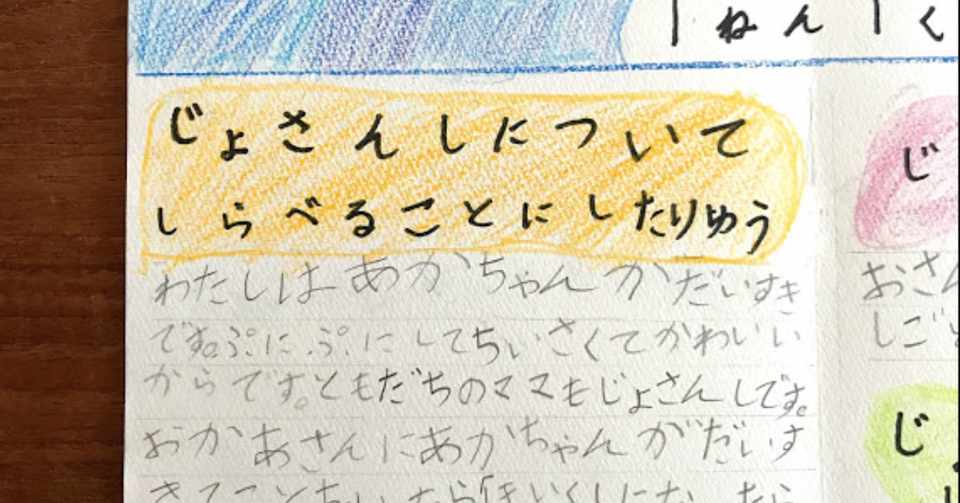 1ねん1く
じょさんしについて
しらべることにしたりゆう
わたしはあかちゃんがだいすき
です。ぷにぷにしてちいさくてかわいい
からです。ともだちのママもじょさんしです。
おかあさんにあかちゃんがだいす
じ
おさん
しご
じ